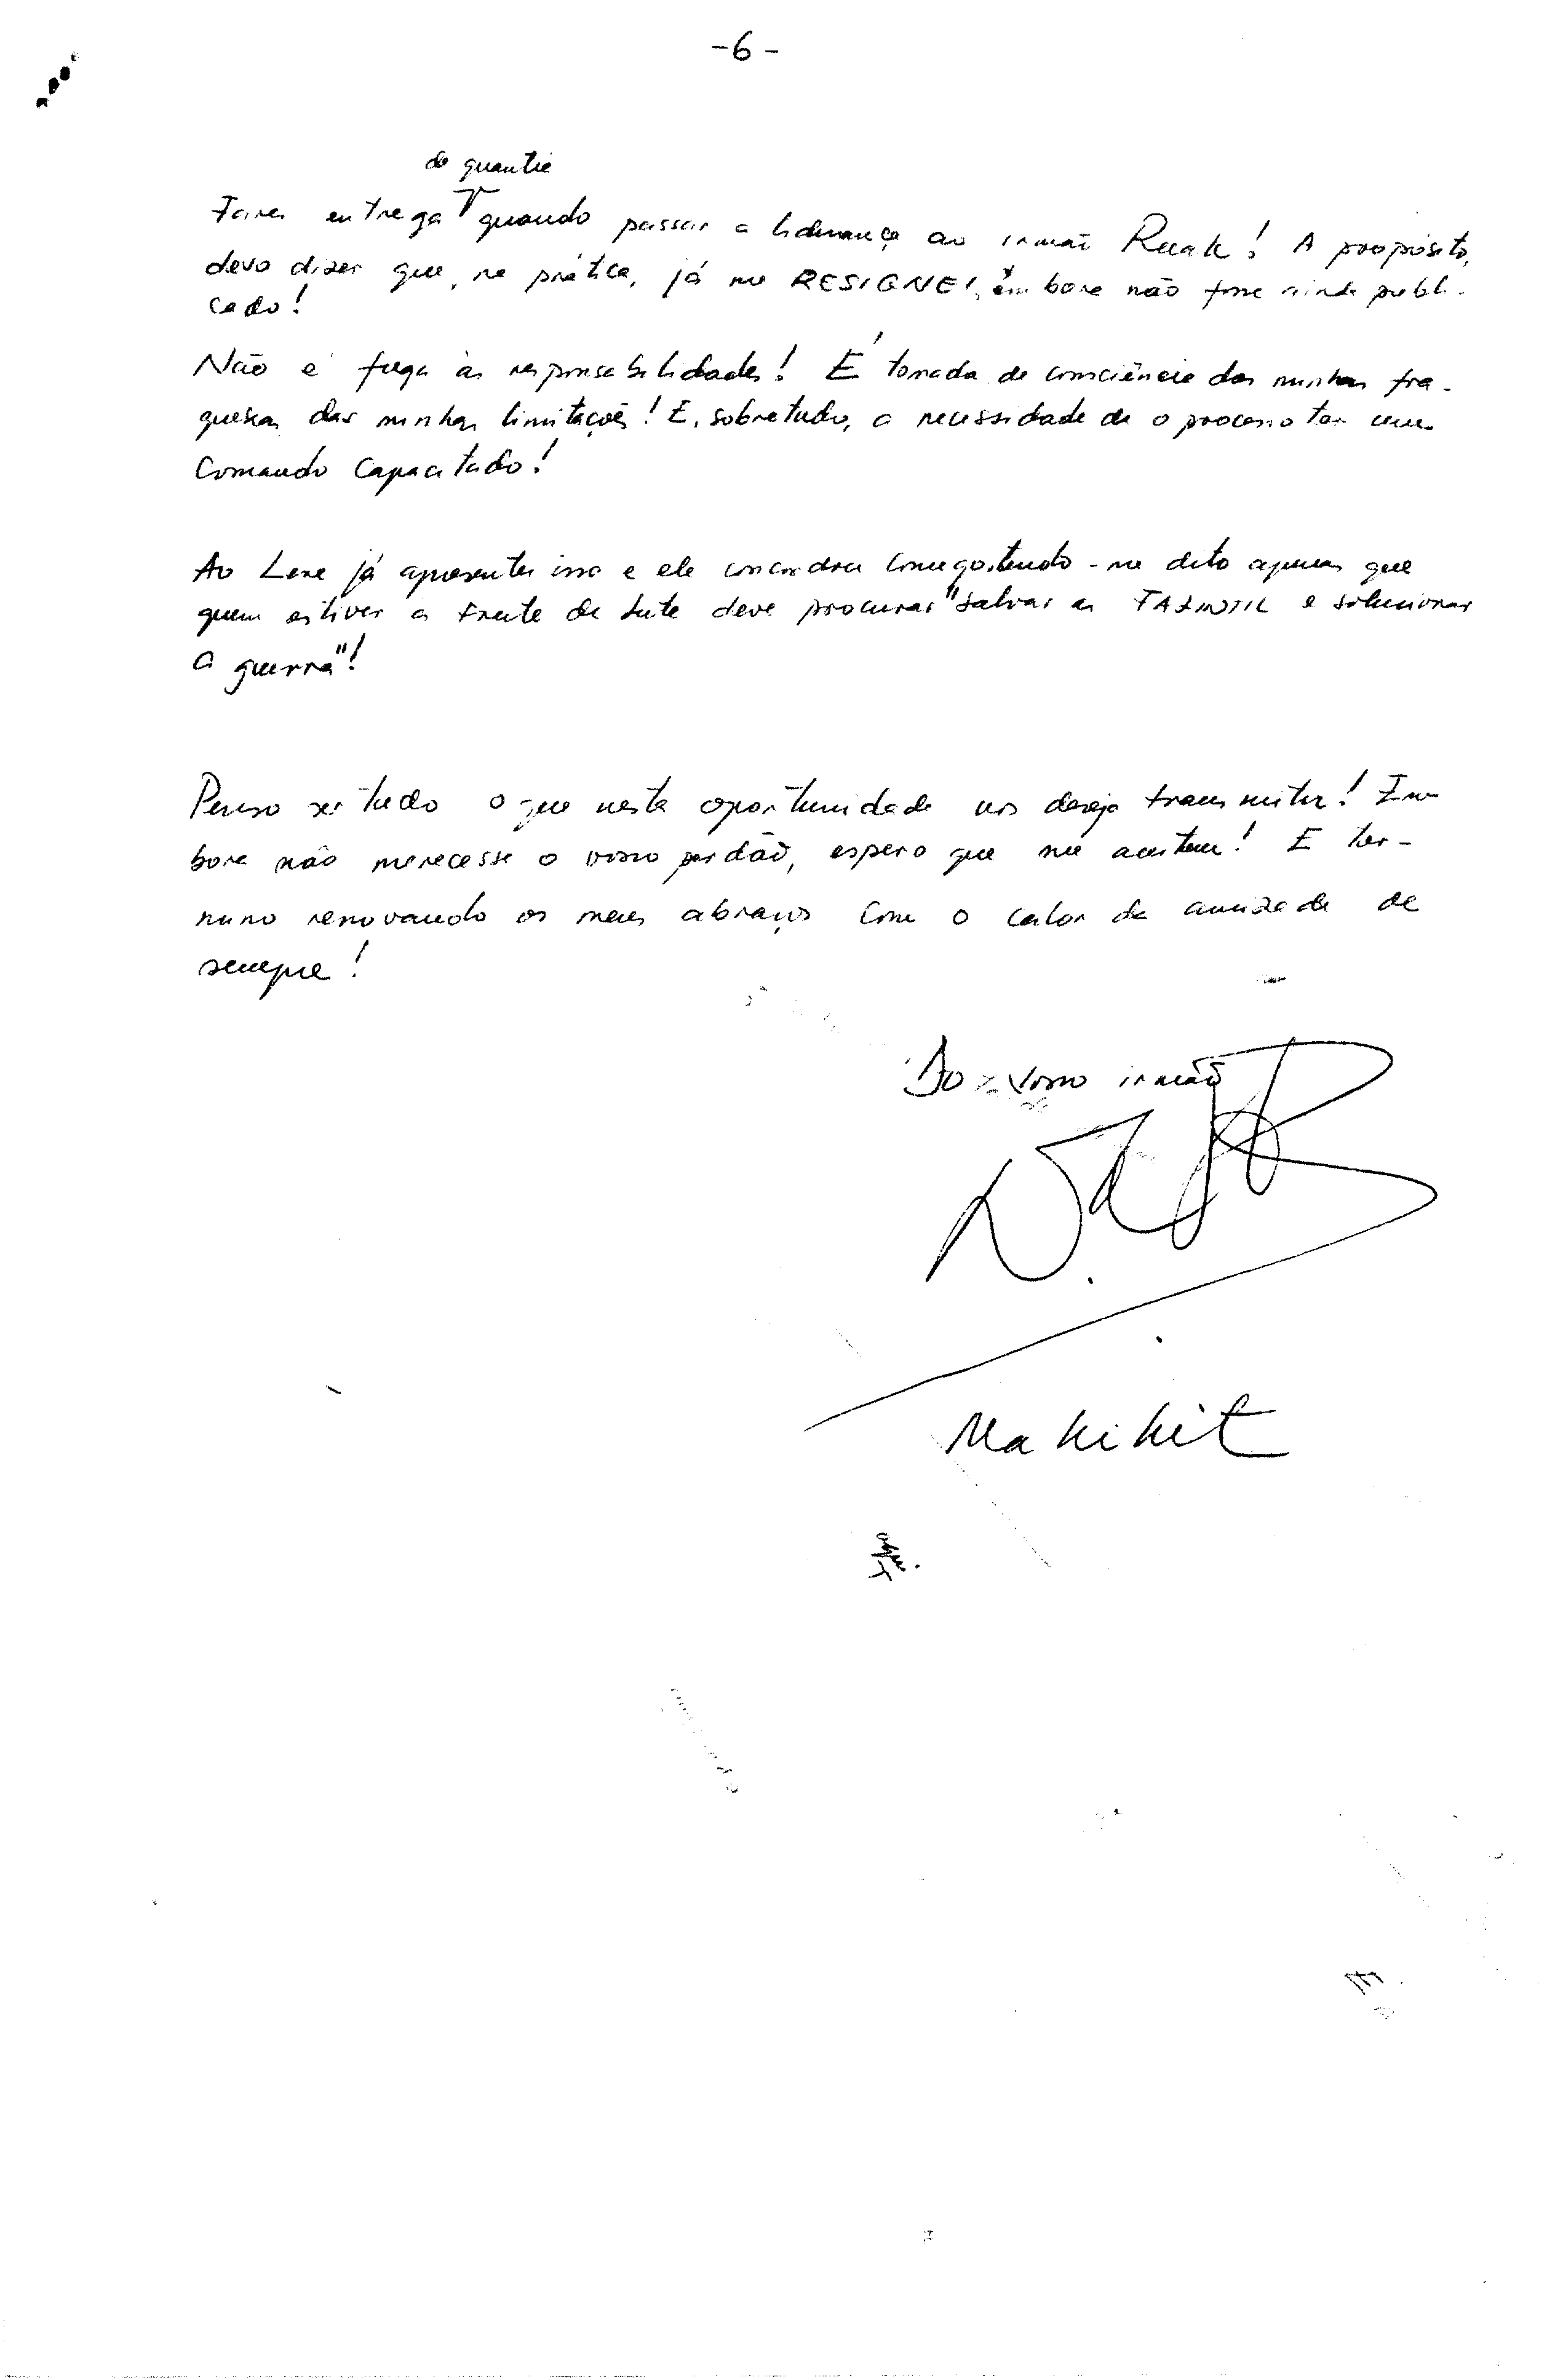 -6-
da quantia
Farei entrega quando passar a liderança ao irmão Ruak! A propósito,
devo dizer que, na prática, já me RESIGNEI, embora não fosse ainda publi-
cado!
Não é fuga às responsabilidades! É tomada de consciência das minhas fra-
quesas, das minhas limitações! E, sobretudo, a necessidade de o processo ter um
Comando Capacitado!
Ao Lere já apresentei isso e ele concordou comigo, tendo-me dito apenas que
quem estiver à frente da Luta deve procurar "salvar as FALINTIL e solucionar
a guerra"!
Penso ser tudo o que nesta oportunidade vos desejo transmitir! Em-
bora não merecesse o vosso perdão, espero que me aceitem! E ter-
mino renovando os meus abraços com o calor da amizade de
sempre!
Do vosso irmão
Makikit